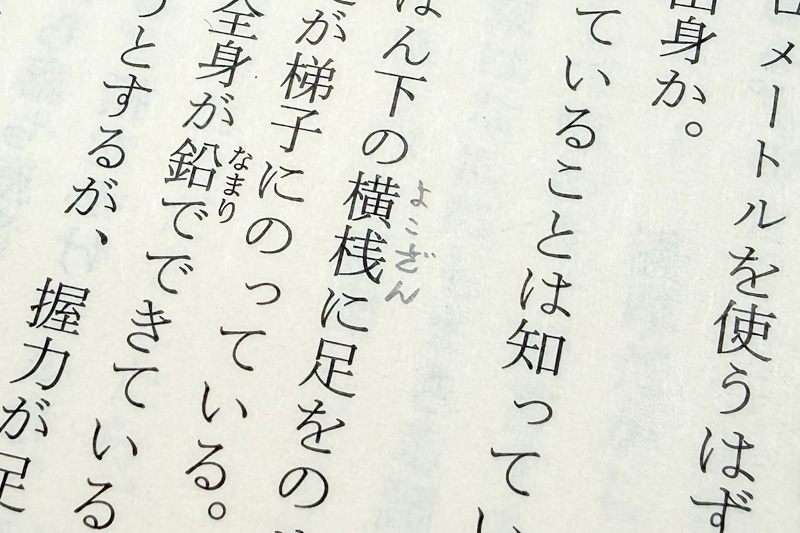 メートルを使うはず
出身か。
ていることは知ってい
ほん下の横桟に足をの
よこざん
が梯子にのっている。
全身が鉛でできている
なまり
うとするが、
握力が足